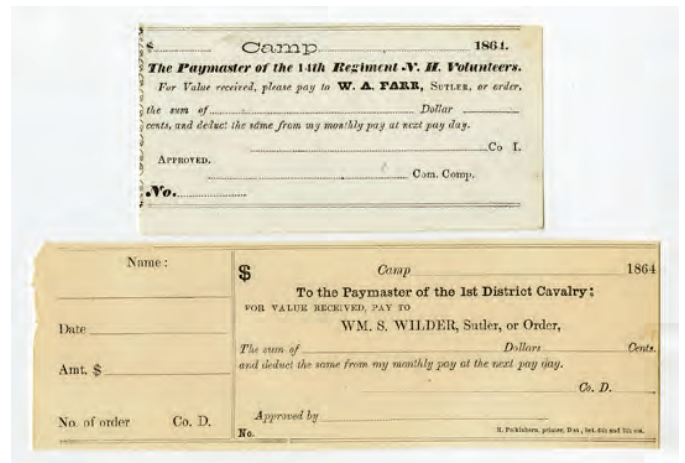 $ Camp 1864.
The Paymaster of the 14th Regiment N. H. Volunteers.
For Value received, please pay to W. A. FARR, SUTLER, or order,
the sum of Dollar
cents, and deduct the same from my monthly pay at next pay day.
Co I.
APPROVED.
Com. Comp.
No.
Name:
Date
Amt. $
No. of order Co. D.
$ Camp 1864
To the Paymaster of the 1st District Cavalry;
FOR VALUE RECEIVED, PAY TO
WM. S. WILDER, Sutler, or Order,
The sum of Dollars Cents.
and deduct the same from my monthly pay at the next pay day.
Co. D.
Approved by
No. printer, bet. 6th and 7th